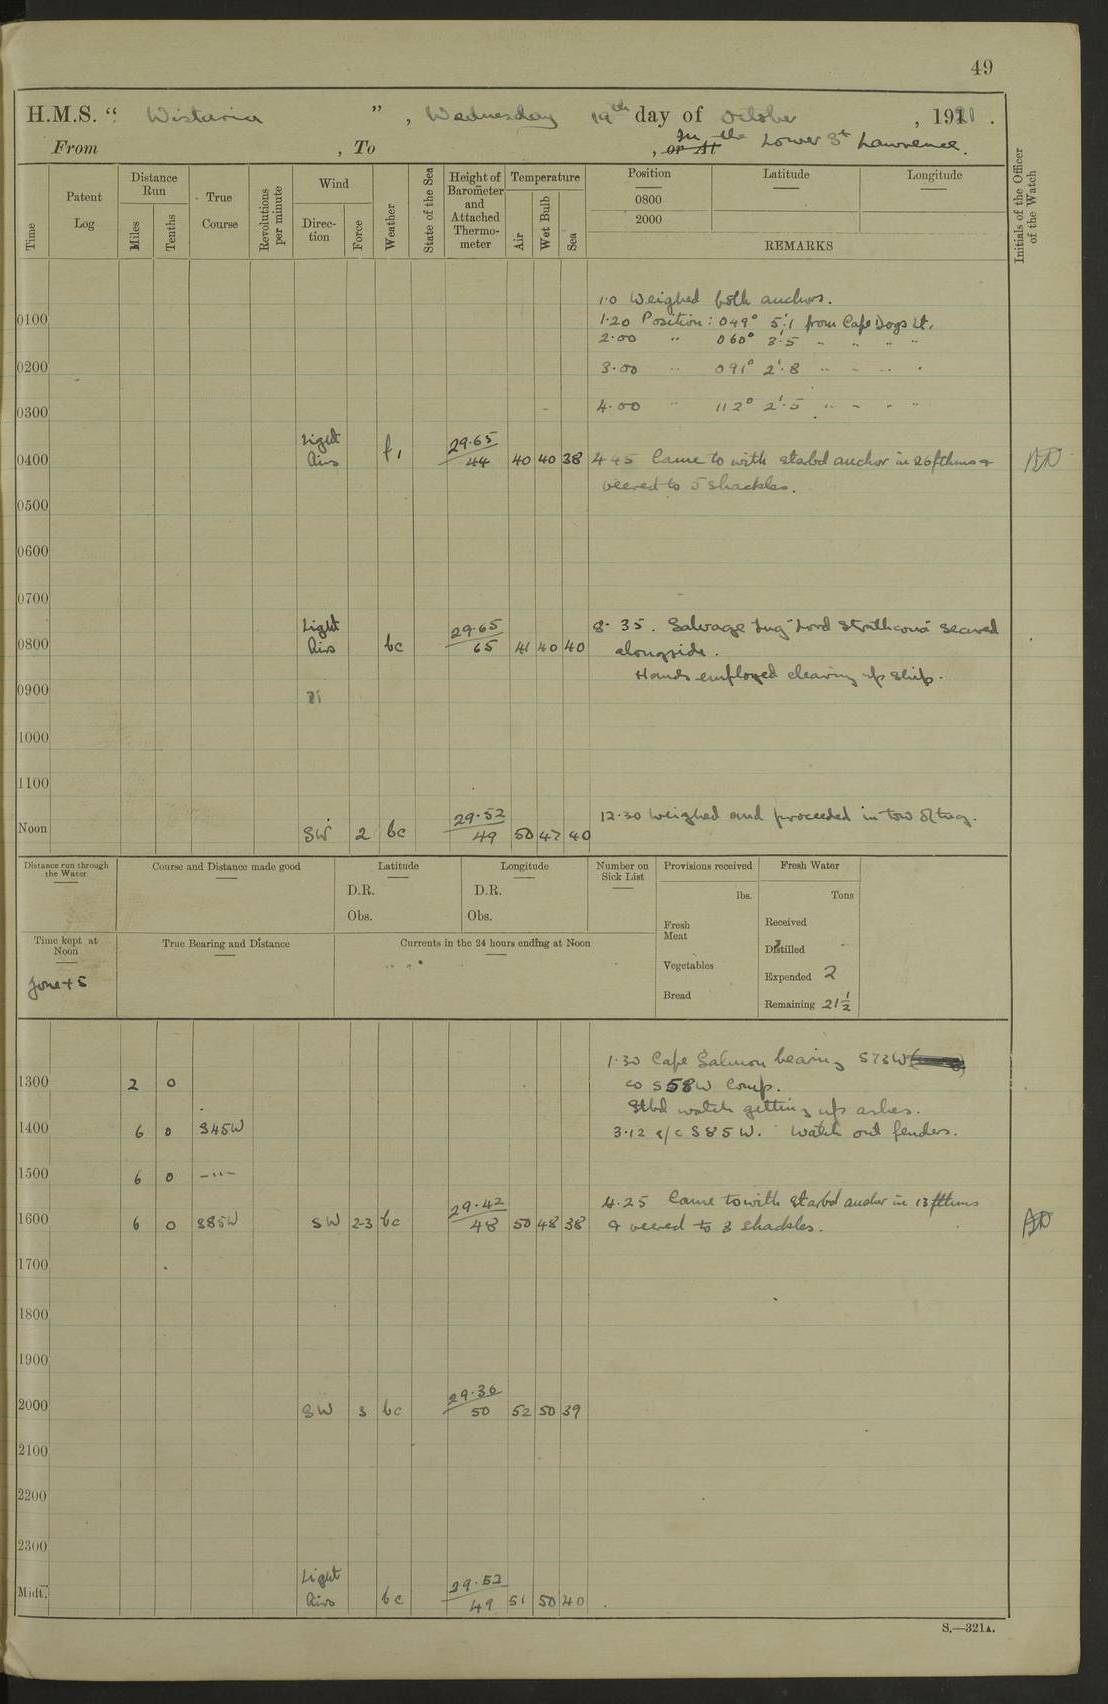 49
H.M.S. " Wistaria ", Wednesday 19th day of October, 1921.
From , To , or At In the Lower St Lawrence.
Time
Patent Log
Distance Run
Miles
Tenths
True Course
Revolutions per minute
Wind
Direction
Force
Weather
State of the Sea
Height of Barometer and Attached Thermometer
Temperature
Air
Wet Bulb
Sea
Position
0800
2000
Latitude
Longitude
REMARKS
Initials of the Officer of the Watch
1.0 Weighed both anchors.
0100 1.20 Position: 049° 5'.1 from Cape Dogs Lt.
2.00 " 060° 3'.5 " " " "
0200 3.00 " 091° 2'.8 " " " "
0300 4.00 " 112° 2'.5 " " " "
Light 29.65
0400 Airs f, 44 40 40 38 4.45 Came to with starbd anchor in 26 fthms &
veered to 5 shackles.
0500
0600
0700
Light 29.65 8.35. Salvage tug "Lord Strathcona" secured
0800 Airs bc 65 41 40 40 alongside.
Hands employed clearing up ship.
0900
1000
1100
29.52 12.30 Weighed and proceeded in tow of tug.
Noon SW 2 bc 49 50 47 40
Distance run through the Water
Course and Distance made good
Latitude
D.R.
Obs.
Longitude
D.R.
Obs.
Number on Sick List
Provisions received
lbs.
Fresh Meat
Vegetables
Bread
Fresh Water
Tons
Received
Distilled
Expended 2
Remaining 21 1/2
Time kept at Noon
Zone +5
True Bearing and Distance
Currents in the 24 hours ending at Noon
1.30 Cape Salmon bearing S73W
1300 2 0 co S58W Comp.
Stbd watch getting up ashes.
1400 6 0 S45W 3.12 a/c S85W. Watch out fenders.
1500 6 0 -"-
29.42 4.25 Came to with starbd anchor in 13 fthms
1600 6 0 S85W SW 2-3 bc 48 50 48 38 & veered to 3 shackles.
1700
1800
1900
29.36
2000 SW 3 bc 50 52 50 39
2100
2200
2300
Light 29.52
Midt. Airs bc 49 51 50 40
S.—321A.